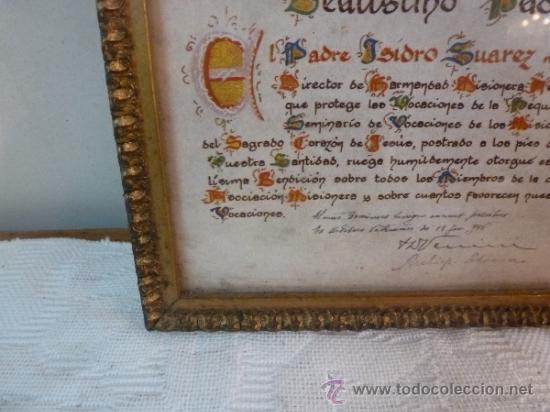 Beatísimo Pad
El Padre Isidro Suarez
Director de Hermandad Misionera
que protege las Vocaciones de la Pequ
Seminario de Vocaciones de los Misio
del Sagrado Corazón de Jesús, postrado a los pies d
Vuestra Santidad, ruega humildemente otorgue es
lísima Bendición sobre todos los Miembros de la c
Asociación Misionera y sobre cuantos favorecen nue
Vocaciones.
www.todocoleccion.net